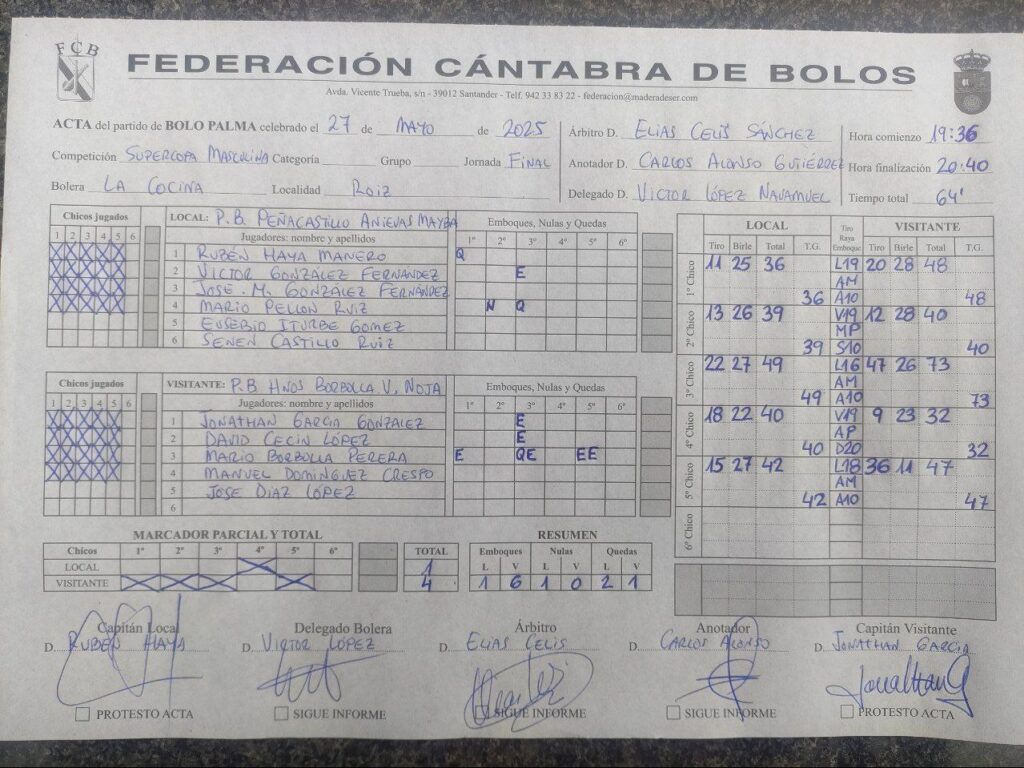 FCB
FEDERACIÓN CÁNTABRA DE BOLOS
Avda. Vicente Trueba, s/n - 39012 Santander - Telf. 942 33 83 22 - federacion@maderadeser.com
ACTA del partido de BOLO PALMA celebrado el 27 de MAYO de 2025
Competición SUPERCOPA MASCULINA Categoría Grupo Jornada FINAL
Bolera LA COCINA Localidad ROIZ
Árbitro D. ELIAS CELIS SÁNCHEZ
Anotador D. CARLOS ALONSO GUTIÉRREZ
Delegado D. VICTOR LÓPEZ NAVAMUEL
Hora comienzo 19:36
Hora finalización 20:40
Tiempo total 64'
Chicos jugados
1 2 3 4 5 6
LOCAL: P.B. PEÑACASTILLO ANIEVAS MAYBA
Jugadores: nombre y apellidos
Emboques, Nulas y Quedas
1º 2º 3º 4º 5º 6º
1 RUBÉN HAYA MANERO Q
2 VICTOR GONZÁLEZ FERNÁNDEZ E
3 JOSE M. GONZÁLEZ FERNÁNDEZ
4 MARIO PELLON RUIZ N Q
5 EUSEBIO ITURBE GOMEZ
6 SENEN CASTILLO RUIZ
Chicos jugados
1 2 3 4 5 6
VISITANTE: P.B HNOS BORBOLLA V. NOJA
Jugadores: nombre y apellidos
Emboques, Nulas y Quedas
1º 2º 3º 4º 5º 6º
1 JONATHAN GARCIA GONZALEZ E
2 DAVID CECIN LÓPEZ E
3 MARIO BORBOLLA PERERA E QE EE
4 MANUEL DOMINGUEZ CRESPO
5 JOSE DIAZ LÓPEZ
6
LOCAL Tiro Raya Emboque VISITANTE
Tiro Birle Total T.G. Tiro Birle Total T.G.
1º Chico 11 25 36 L19 20 28 48
AM
36 A10 48
2º Chico 13 26 39 V19 12 28 40
MP
39 S10 40
3º Chico 22 27 49 L16 47 26 73
AM
49 A10 73
4º Chico 18 22 40 V19 9 23 32
AP
40 D20 32
5º Chico 15 27 42 L18 36 11 47
AM
42 A10 47
6º Chico
MARCADOR PARCIAL Y TOTAL
Chicos 1º 2º 3º 4º 5º 6º TOTAL
LOCAL 1
VISITANTE 4
RESUMEN
Emboques Nulas Quedas
L V L V L V
1 6 1 0 2 1
Capitán Local
D. RUBÉN HAYA
PROTESTO ACTA
Delegado Bolera
D. VICTOR LÓPEZ
SIGUE INFORME
Árbitro
D. ELIAS CELIS
SIGUE INFORME
Anotador
D. CARLOS ALONSO
SIGUE INFORME
Capitán Visitante
D. JONATHAN GARCIA
Jonathan G
PROTESTO ACTA